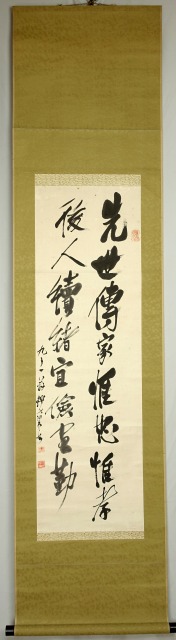 先世傳家惟忠惟孝
後人續緒宜儉宜勤
九十一翁